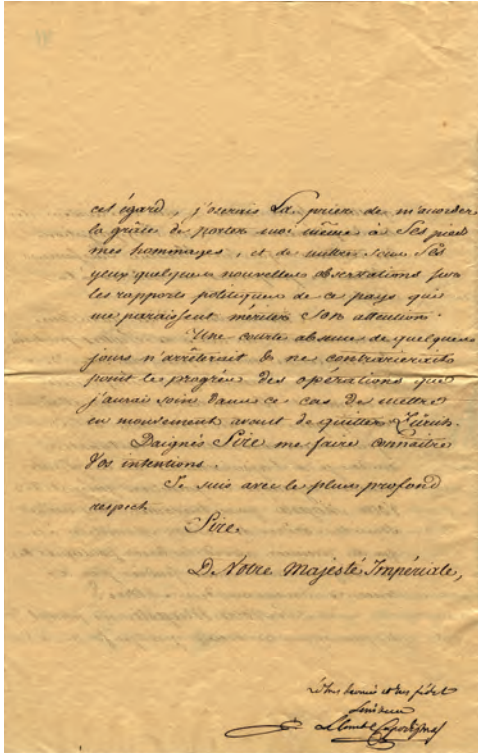 cet égard, j'oserais La prier de m'accorder
la grâce de porter moi même à Ses pieds
mes hommages, et de mettre sous Ses
yeux quelques nouvelles observations sur
les rapports politiques de ce pays qui
me paraissent mériter Son attention.
Une courte absence de quelques
jours n'arrêterait & ne contrarierait
point le progrès des opérations que
j'aurai soin dans ce cas de mettre
en mouvement avant de quitter Zürich.
Daignés Sire me faire connaître
Vos intentions.
Je suis avec le plus profond
respect
Sire
D Votre Majesté Impériale,
le très humble et très fidel
Serviteur
Le Comte Capodistrias